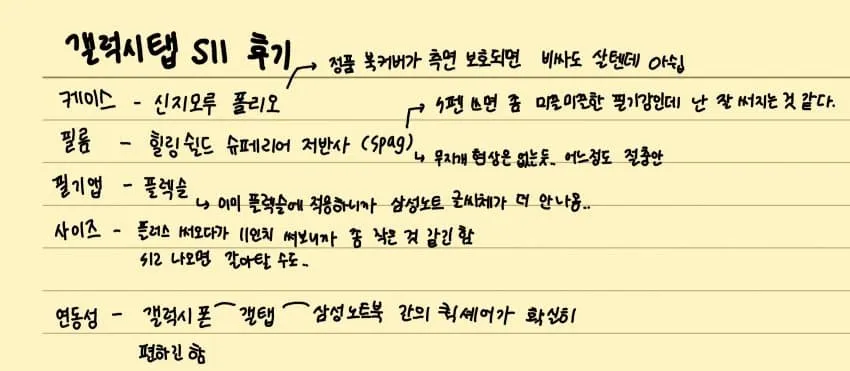 갤럭시탭 S11 후기
→ 정품 북커버가 측면 보호되면 비싸도 살텐데 아쉽
케이스 - 신지모루 폴리오
→ S펜 쓰면 좀 미끌미끌한 필기감인데 난 잘 써지는 것 같다.
필름 - 힐링쉴드 슈페리어 저반사 (spag)
↳ 무지개 현상은 없는듯.. 어느정도 절충안
필기앱 - 플렉슬
↳ 이미 플렉슬에 적응하니까 삼성노트 글씨체가 더 안나옴..
사이즈 - 플러스 써오다가 11인치 써보니까 좀 작은 것 같긴 함
S12 나오면 갈아탈 수도..
연동성 - 갤럭시 폰 ⌒ 갤탭 ⌒ 삼성노트북 간의 퀵셰어가 확실히
편하긴 함